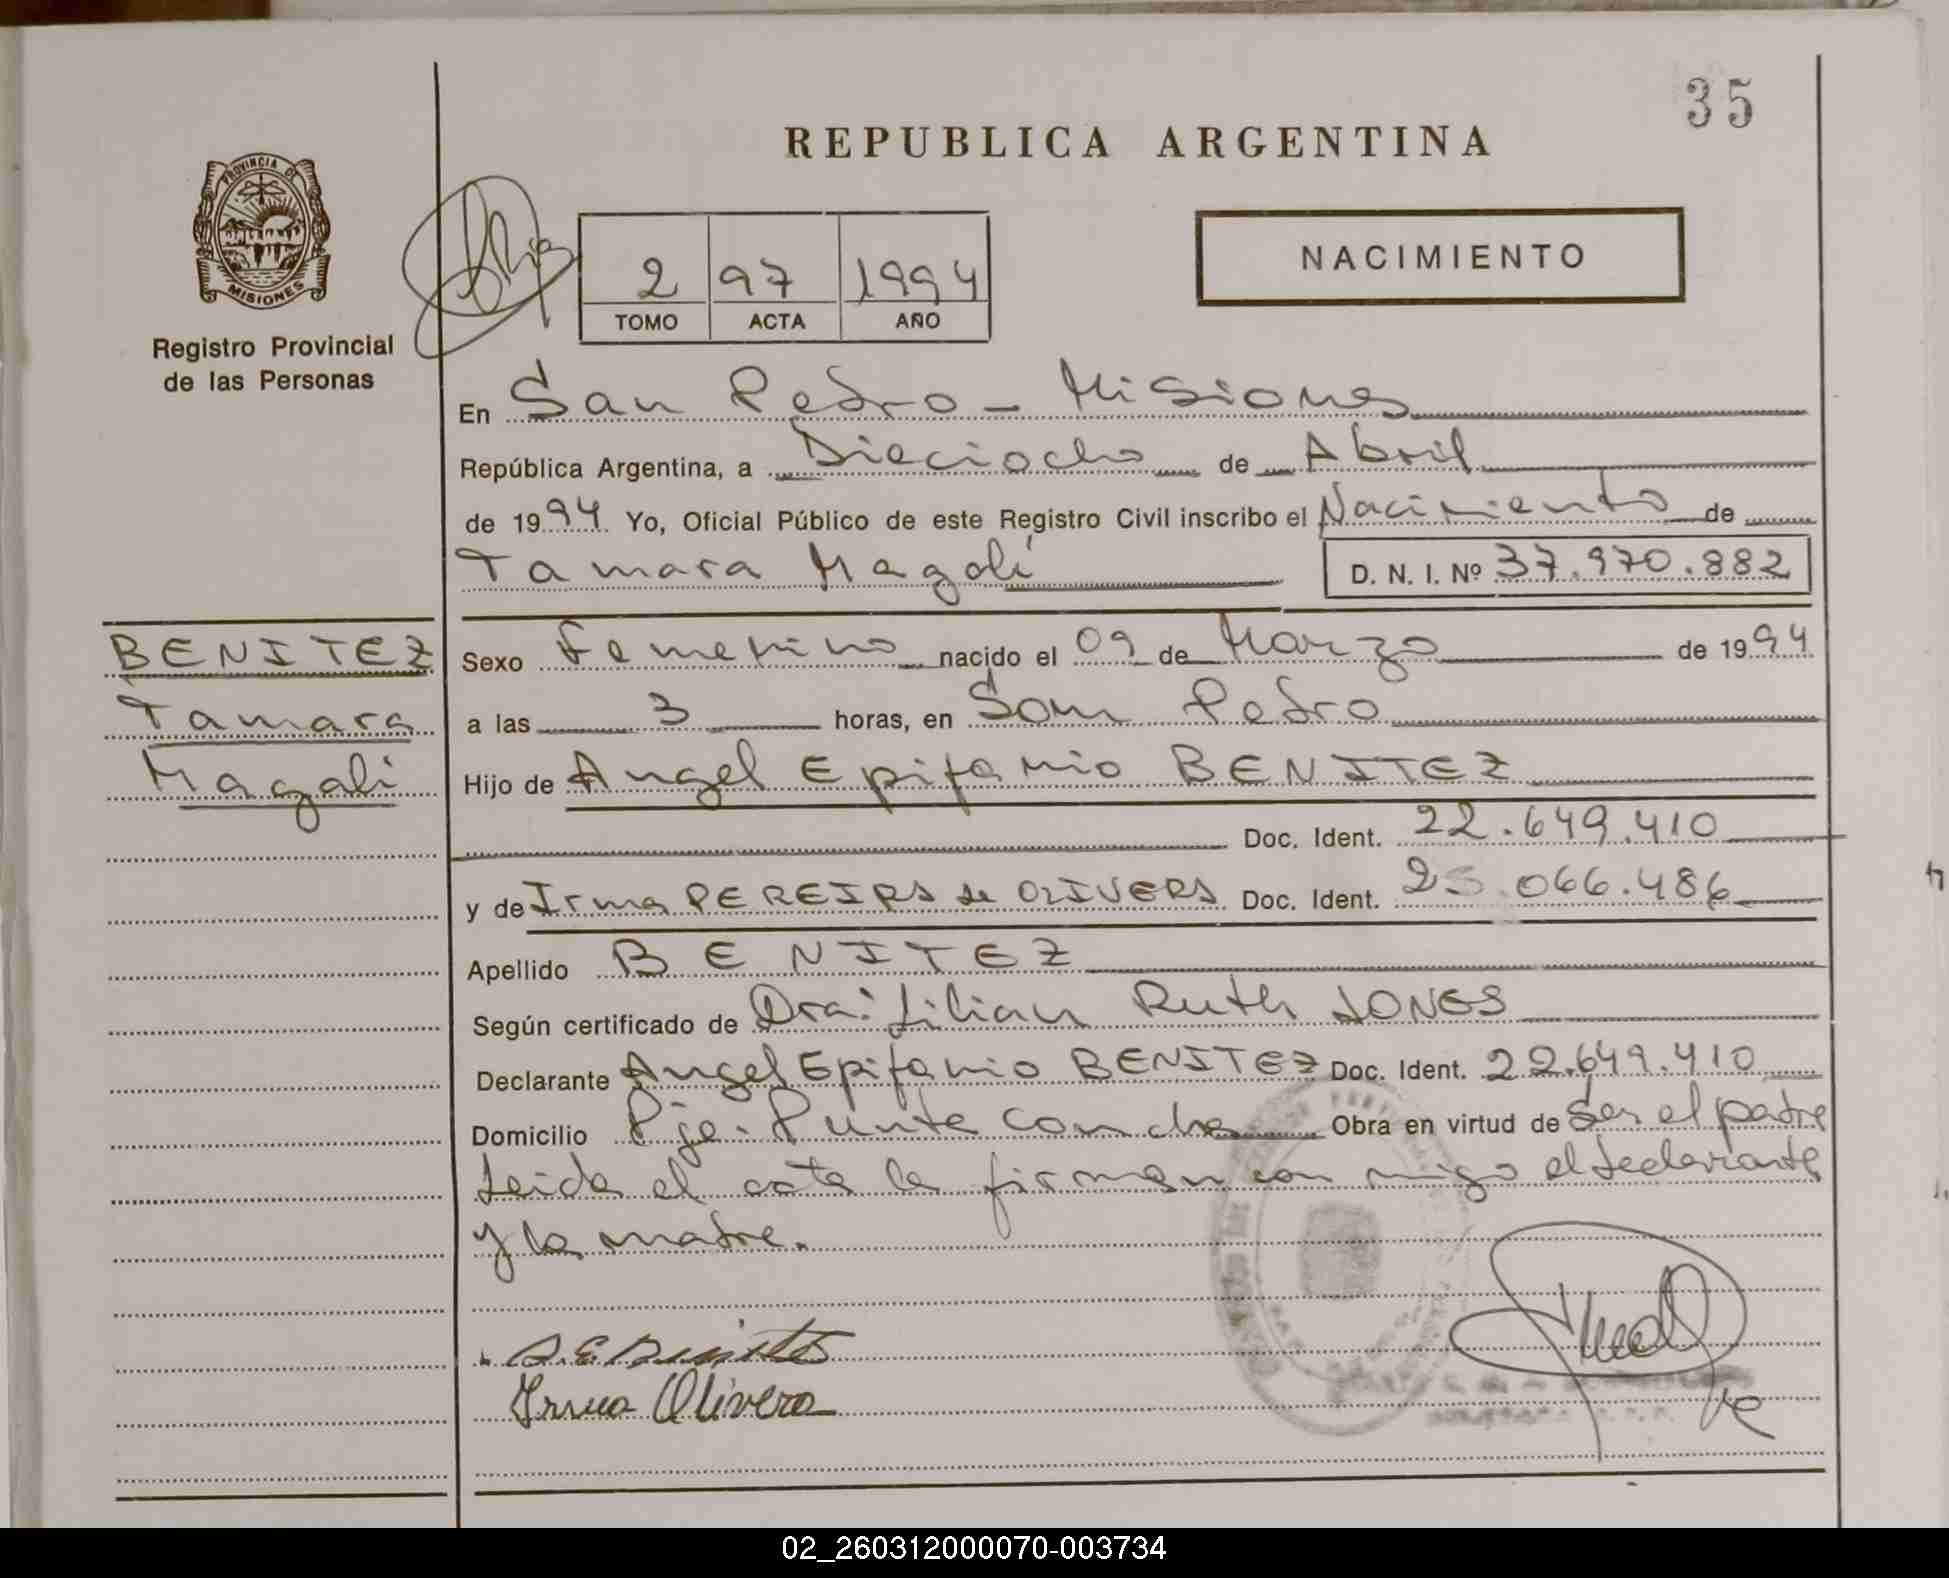 35
REPUBLICA ARGENTINA
PROVINCIA DE
MISIONES
Registro Provincial
de las Personas
2 97 1994
TOMO ACTA AÑO
NACIMIENTO
En San Pedro - Misiones
República Argentina, a Dieciocho de Abril
de 1994 Yo, Oficial Público de este Registro Civil inscribo el Nacimiento de
Tamara Magali D. N. I. Nº 37.970.882
BENITEZ
Tamara
Magali
Sexo Femenino nacido el 09 de Marzo de 1994
a las 3 horas, en San Pedro
Hijo de Angel Epifanio BENITEZ
Doc. Ident. 22.649.410
y de Irma PEREIRA de OLIVERA Doc. Ident. 25.066.486
Apellido BENITEZ
Según certificado de Dra: Lilian Ruth JONES
Declarante Angel Epifanio BENITEZ Doc. Ident. 22.649.410
Domicilio Pje. Punta Concha Obra en virtud de Ser el padre
Leida el acta la firman con migo el declarante
y la madre.
A.E. Benitez
Irma Olivera
02_260312000070-003734